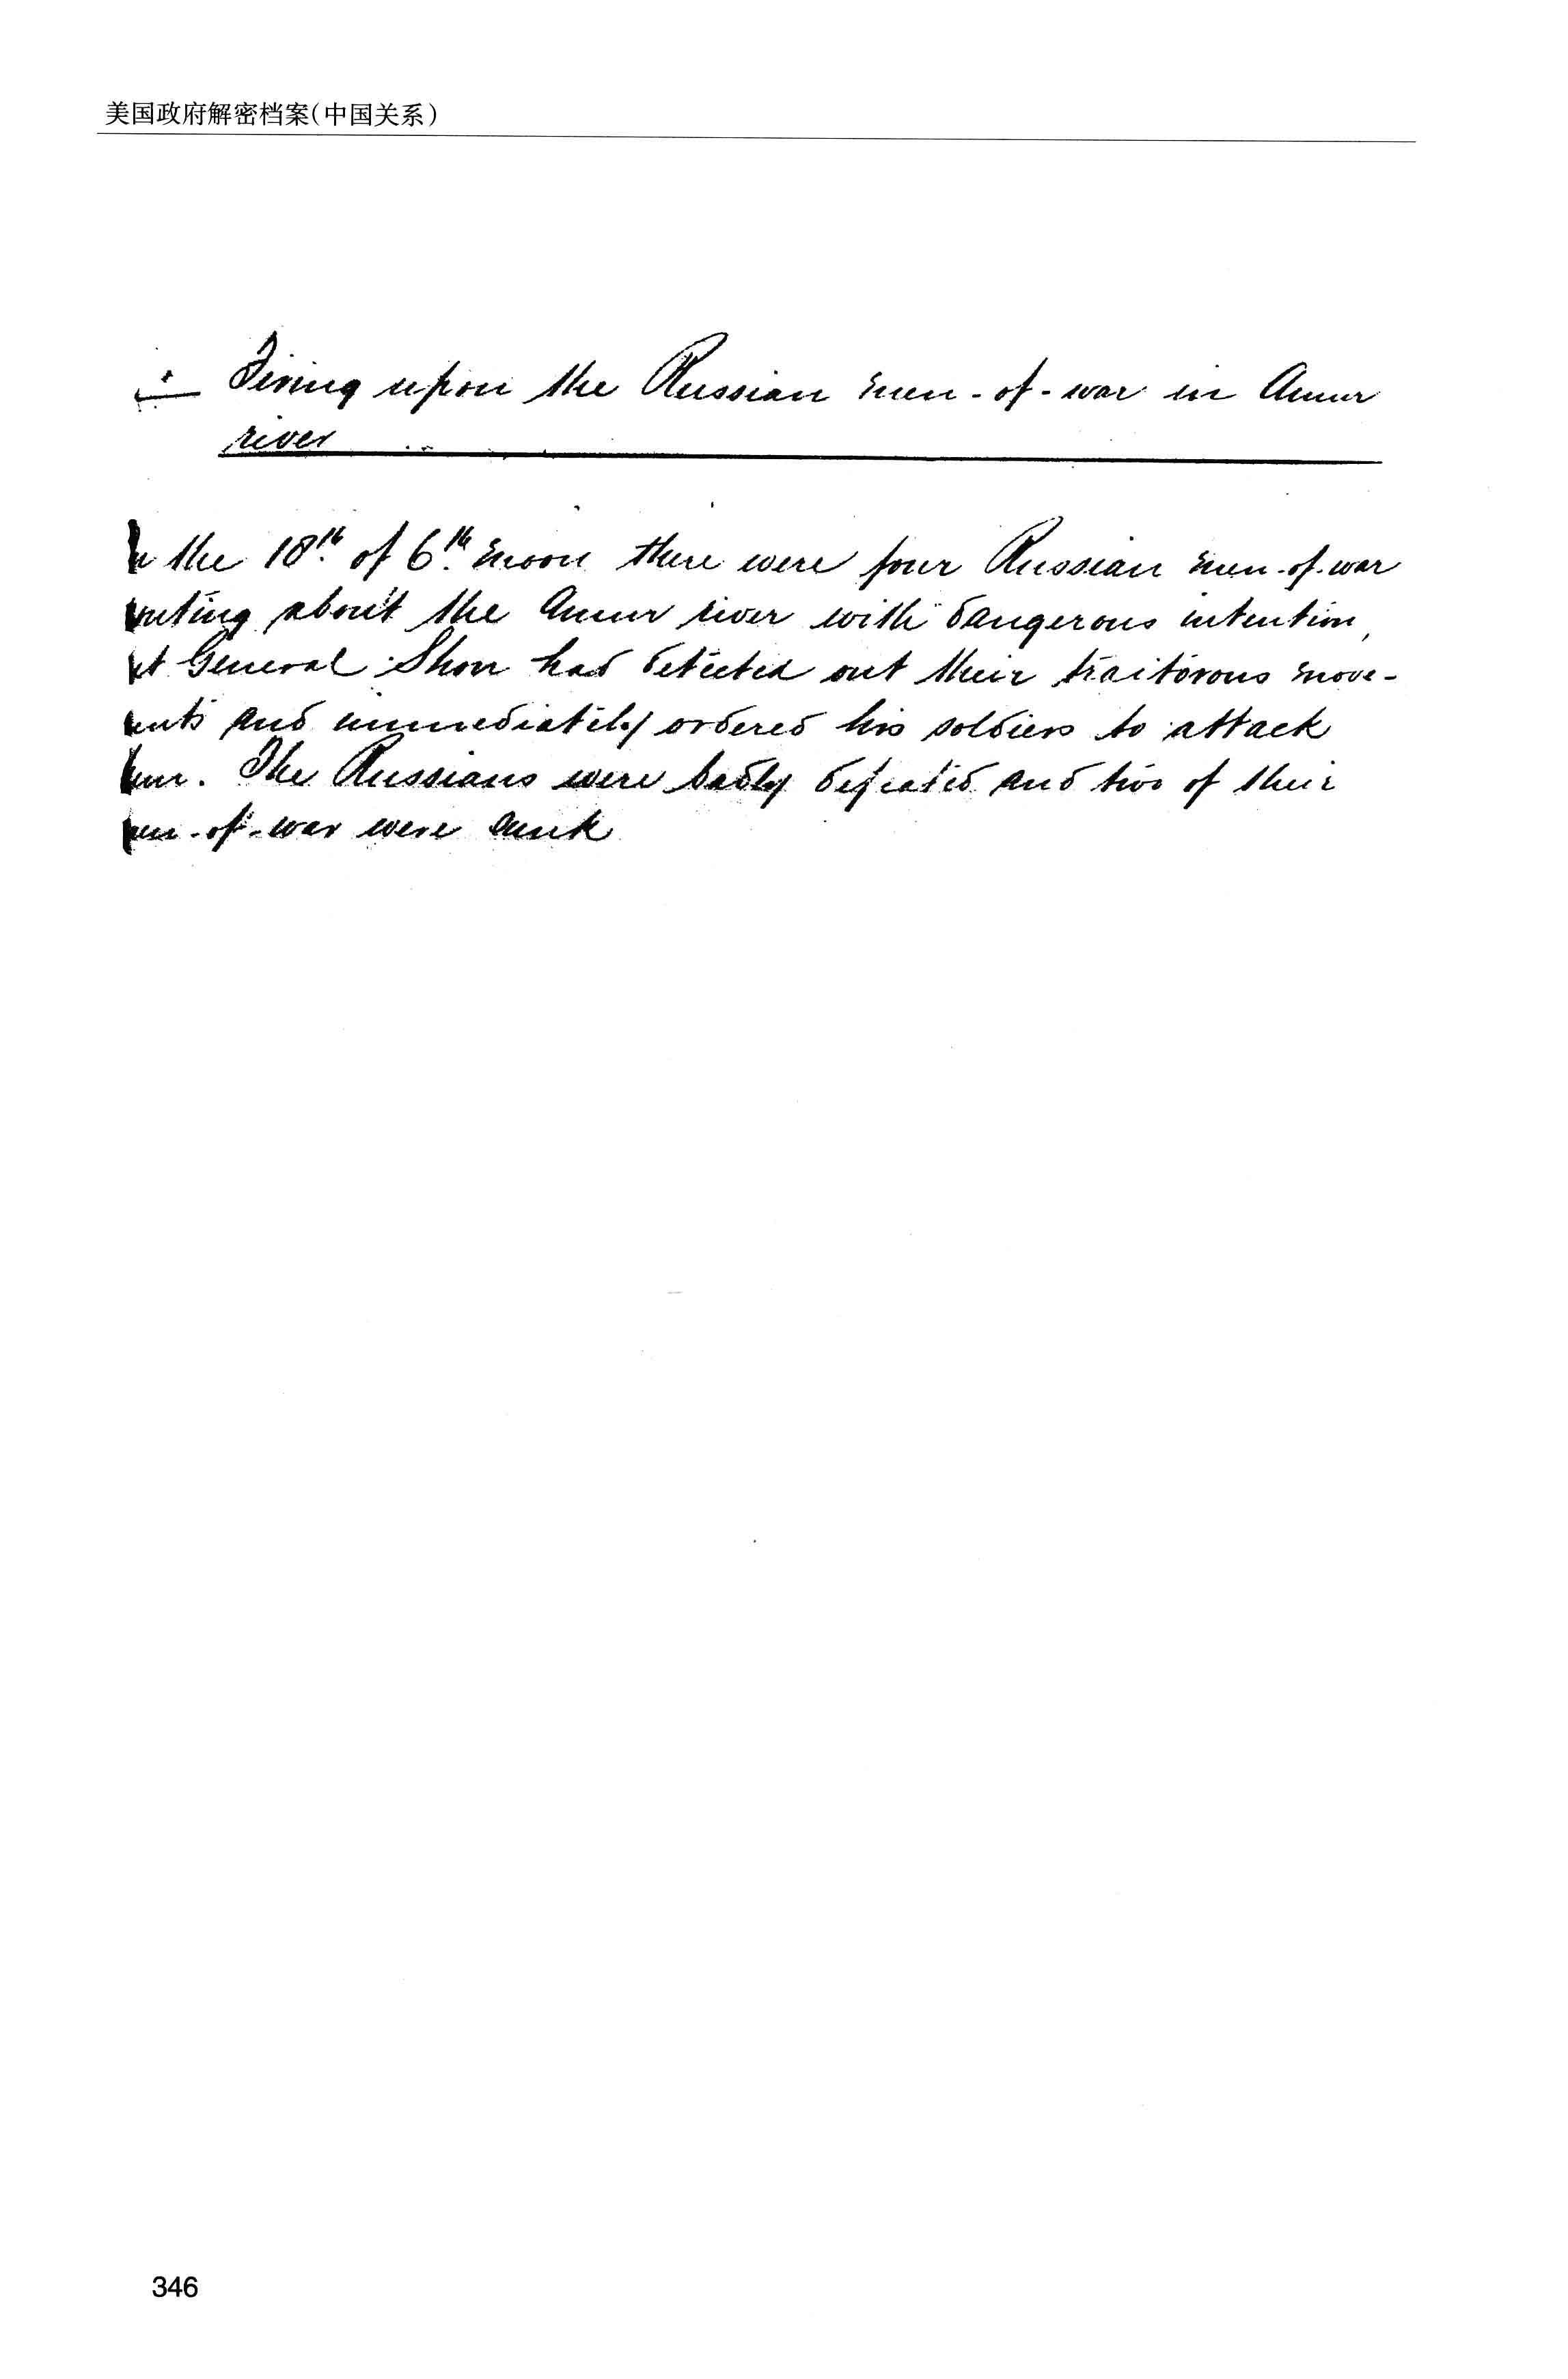 美国政府解密档案(中国关系)
Firing upon the Russian men-of-war in Amur
river
the 18th of 6th moon there were four Russian men-of-war
about the Amur river with dangerous intention,
General Shou had detected out their traitorous move-
and immediately ordered his soldiers to attack
The Russians were badly defeated and two of their
-of-war were sunk
346